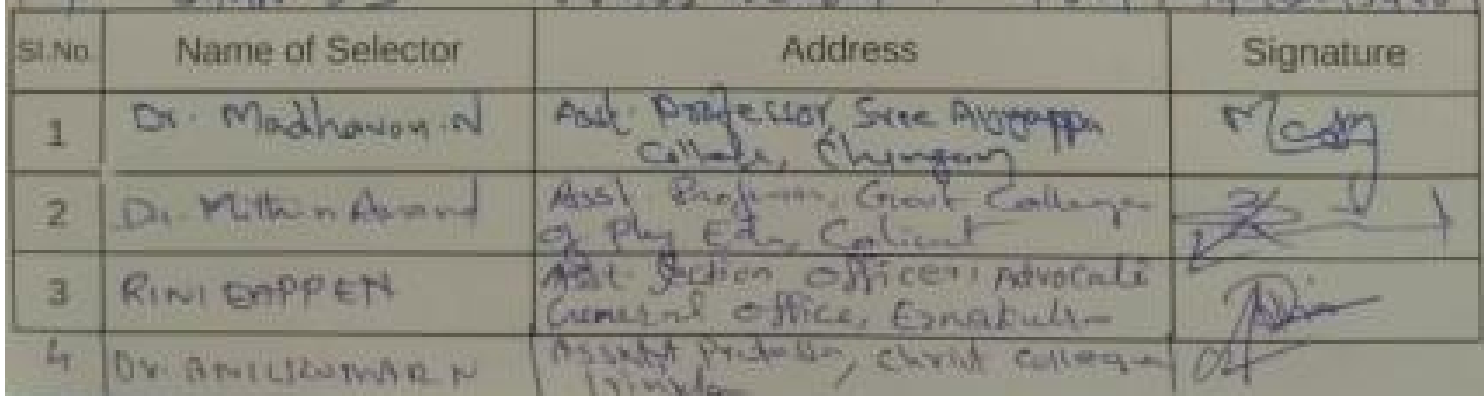 Sl.No. Name of Selector Address Signature
1 Dr. Madhavan.N Asst. Professor, Sree Ayyappa
College,
2 Dr. Mithin Anand Asst. Professor, Govt College
of Phy Edn, Calicut
3 RINI EAPPEN Asst. Section Officer, Advocate
General office, Ernakulam
4 Dr. ANILKUMAR N Assistant Professor, Christ College